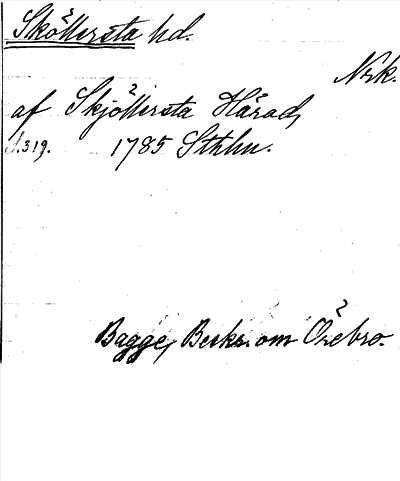 Sköllersta hd.
Nrk.
af Skjöllersta Härad,
S.319. 1785 Sthlm.
Bagge, Beskr. om Örebro.